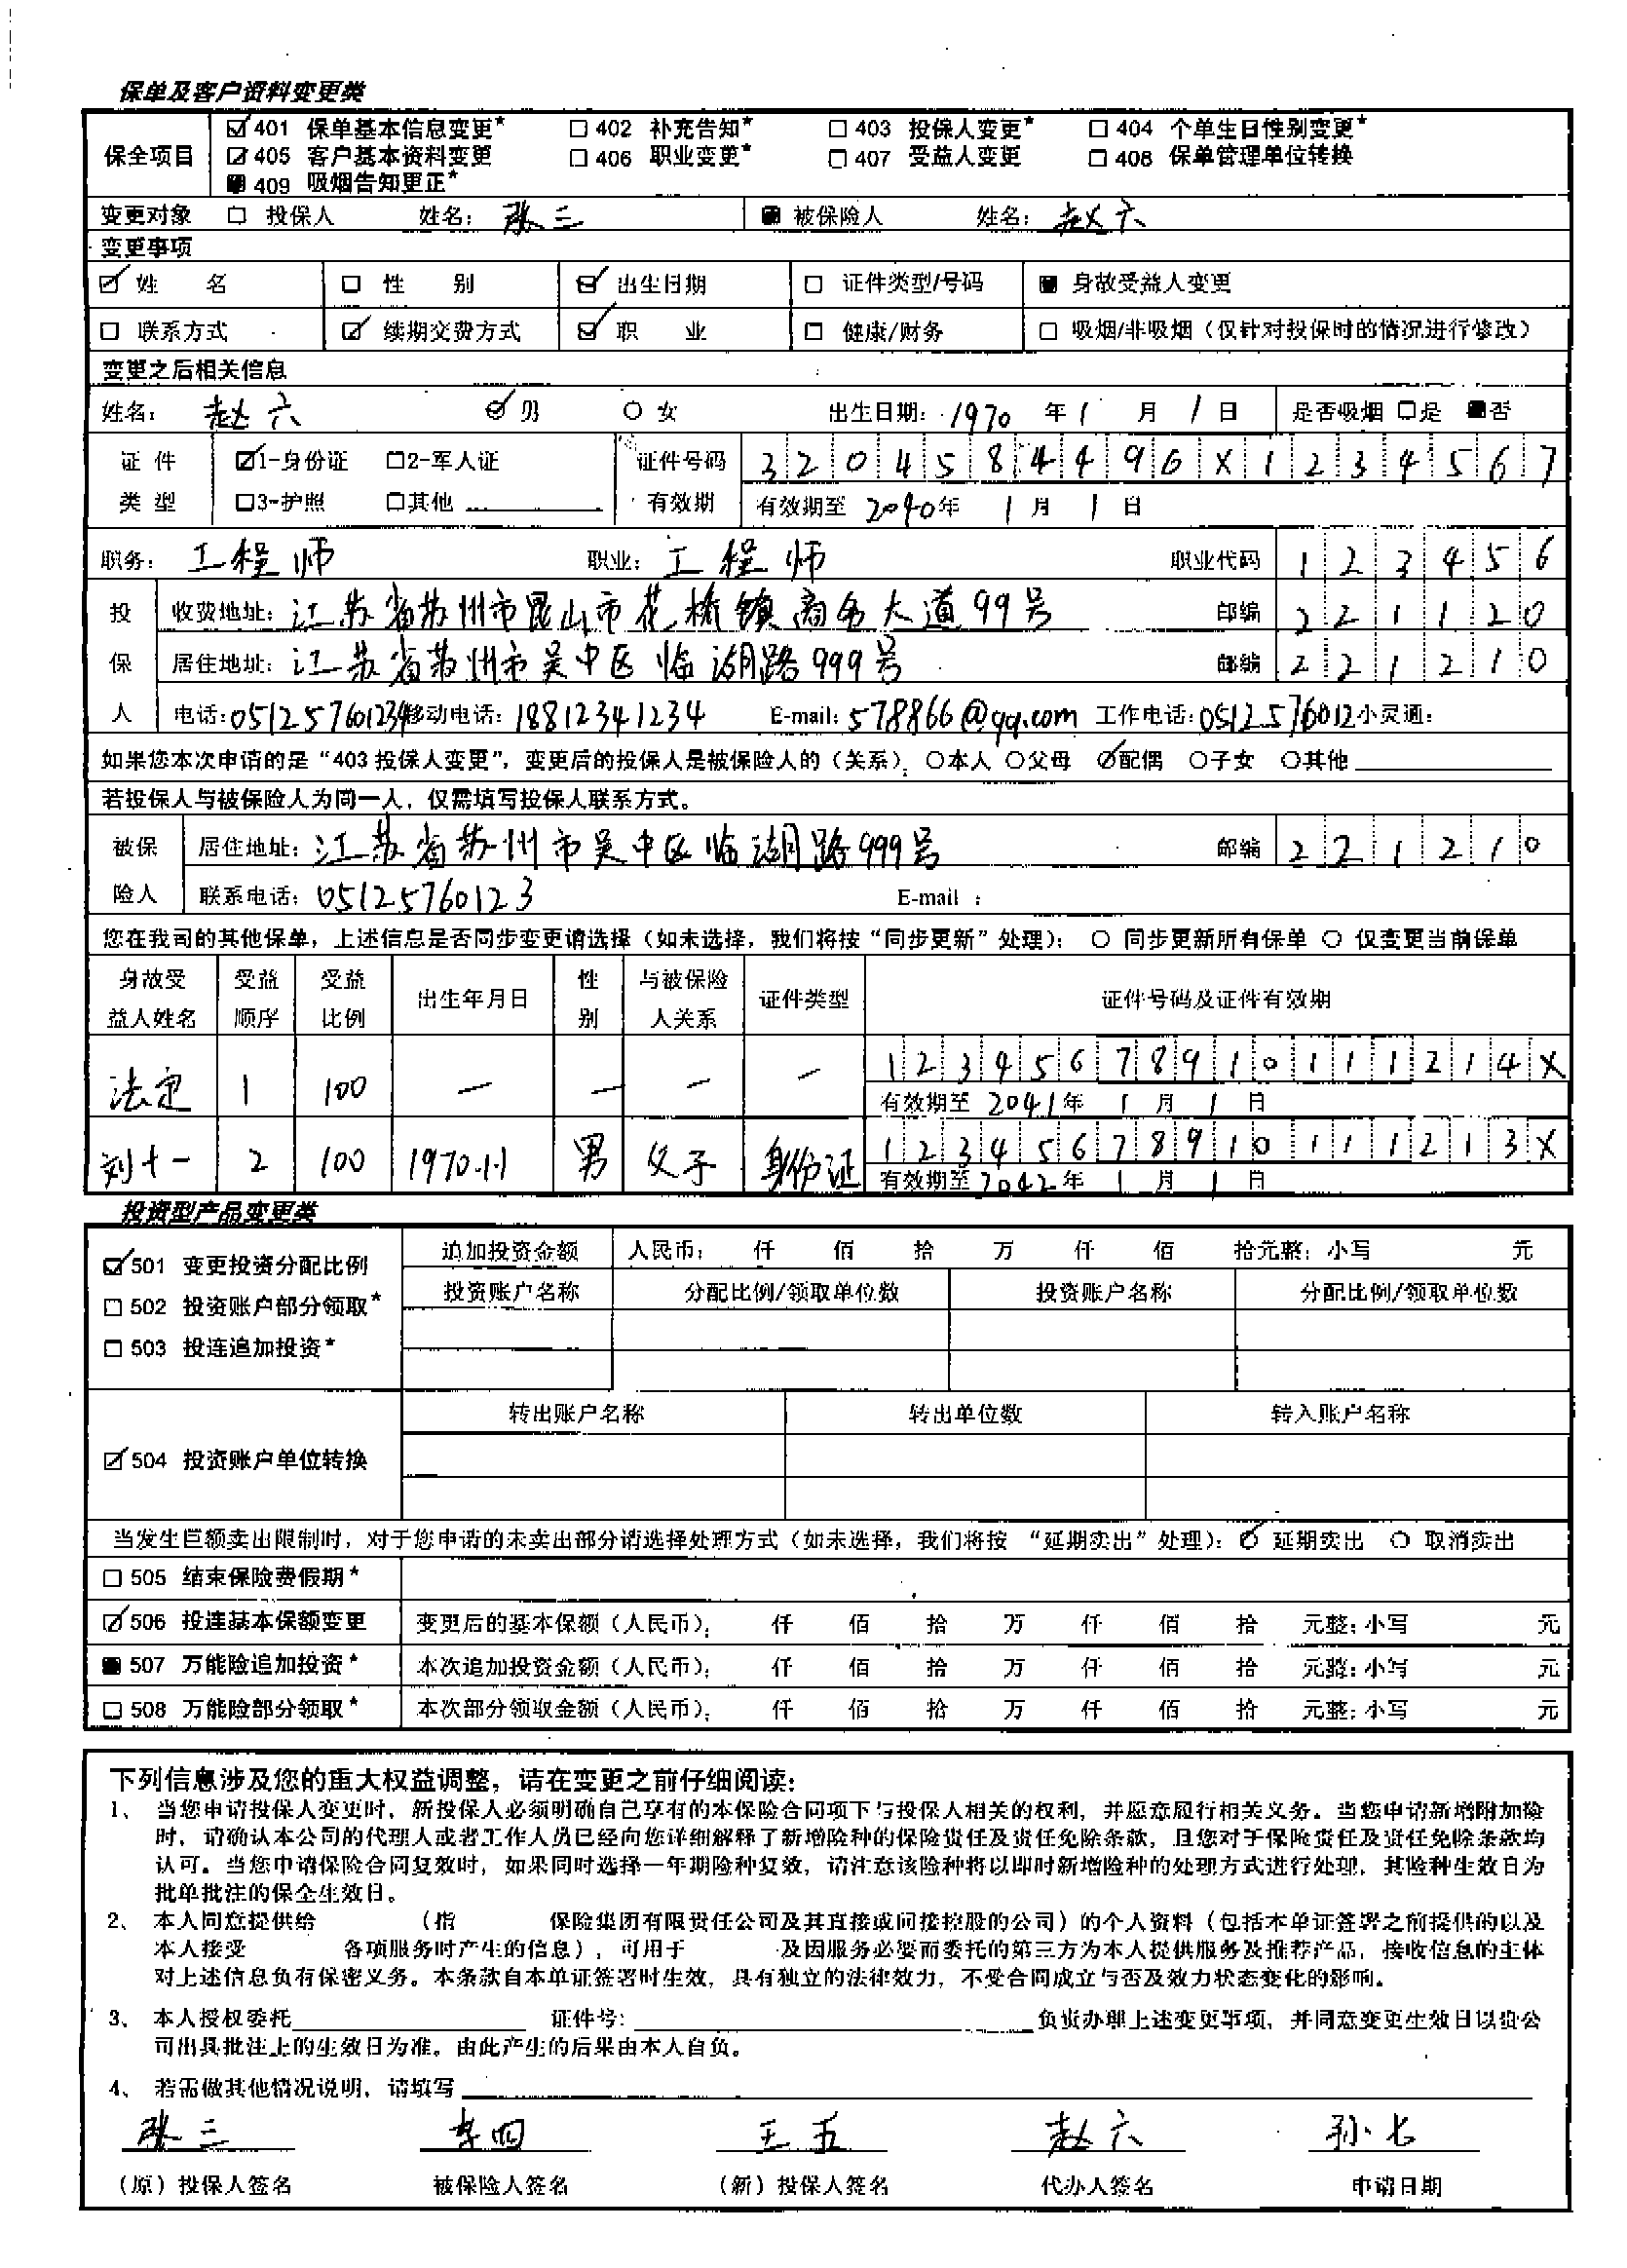 保单及客户资料变更类
保全项目 ☑401 保单基本信息变更* ☐402 补充告知* ☐403 投保人变更* ☐404 个单生日性别变更*
☑405 客户基本资料变更 ☐406 职业变更* ☐407 受益人变更 ☐408 保单管理单位转换
■409 吸烟告知更正*
变更对象 ☐ 投保人 姓名: 张三 ■ 被保险人 姓名: 赵六
变更事项
☑ 姓 名 ☐ 性 别 ☑ 出生日期 ☐ 证件类型/号码 ■ 身故受益人变更
☐ 联系方式 ☑ 续期交费方式 ☑ 职 业 ☐ 健康/财务 ☐ 吸烟/非吸烟(仅针对投保时的情况进行修改)
变更之后相关信息
姓名: 赵六 ☑ 男 ○ 女 出生日期: 1970 年 1 月 1 日 是否吸烟 ☐是 ■否
证件类型 ☑1-身份证 ☐2-军人证 证件号码 3204584496X1234567
☐3-护照 ☐其他 有效期 有效期至 2040年 1 月 1 日
职务: 工程师 职业: 工程师 职业代码 123456
投保人 收费地址: 江苏省苏州市昆山市花桥镇商务大道99号 邮编 221120
居住地址: 江苏省苏州市吴中区临湖路999号 邮编 221210
电话: 051257601234 移动电话: 18812341234 E-mail: 578866@qq.com 工作电话: 0512576012 小灵通:
如果您本次申请的是“403 投保人变更”, 变更后的投保人是被保险人的(关系): ○本人 ○父母 ☑配偶 ○子女 ○其他
若投保人与被保险人为同一人, 仅需填写投保人联系方式。
被保险人 居住地址: 江苏省苏州市吴中区临湖路999号 邮编 221210
联系电话: 05125760123 E-mail :
您在我司的其他保单, 上述信息是否同步变更请选择(如未选择, 我们将按“同步更新”处理): ○ 同步更新所有保单 ○ 仅变更当前保单
身故受益人姓名 受益顺序 受益比例 出生年月日 性别 与被保险人关系 证件类型 证件号码及证件有效期
法定 1 100 — — — — 12345678910111214X
有效期至 2041年 1 月 1 日
刘十一 2 100 1970.1.1 男 父子 身份证 12345678910111213X
有效期至 2042年 1 月 1 日
投资型产品变更类
☑501 变更投资分配比例 追加投资金额 人民币: 仟 佰 拾 万 仟 佰 拾元整: 小写 元
☐502 投资账户部分领取* 投资账户名称 分配比例/领取单位数 投资账户名称 分配比例/领取单位数
☐503 投连追加投资*
转出账户名称 转出单位数 转入账户名称
☑504 投资账户单位转换
当发生巨额卖出限制时, 对于您申请的未卖出部分请选择处理方式(如未选择, 我们将按“延期卖出”处理): ☑ 延期卖出 ○ 取消卖出
☐505 结束保险费假期*
☑506 投连基本保额变更 变更后的基本保额(人民币): 仟 佰 拾 万 仟 佰 拾 元整: 小写 元
■507 万能险追加投资* 本次追加投资金额(人民币): 仟 佰 拾 万 仟 佰 拾 元整: 小写 元
☐508 万能险部分领取* 本次部分领取金额(人民币): 仟 佰 拾 万 仟 佰 拾 元整: 小写 元
下列信息涉及您的重大权益调整, 请在变更之前仔细阅读:
1、 当您申请投保人变更时, 新投保人必须明确自己享有的本保险合同项下与投保人相关的权利, 并愿意履行相关义务。当您申请新增附加险
时, 请确认本公司的代理人或者工作人员已经向您详细解释了新增险种的保险责任及责任免除条款, 且您对于保险责任及责任免除条款均
认可。当您申请保险合同复效时, 如果同时选择一年期险种复效, 请注意该险种将以即时新增险种的处理方式进行处理, 其险种生效日为
批单批注的保全生效日。
2、 本人同意提供给 (指 保险集团有限责任公司及其直接或间接控股的公司)的个人资料(包括本单证签署之前提供的以及
本人接受 各项服务时产生的信息), 可用于 及因服务必要而委托的第三方为本人提供服务及推荐产品, 接收信息的主体
对上述信息负有保密义务。本条款自本单证签署时生效, 具有独立的法律效力, 不受合同成立与否及效力状态变化的影响。
3、 本人授权委托 证件号: 负责办理上述变更事项, 并同意变更生效日以贵公
司出具批注上的生效日为准。由此产生的后果由本人自负。
4、 若需做其他情况说明, 请填写
张三 李四 王五 赵六 孙七
(原)投保人签名 被保险人签名 (新)投保人签名 代办人签名 申请日期